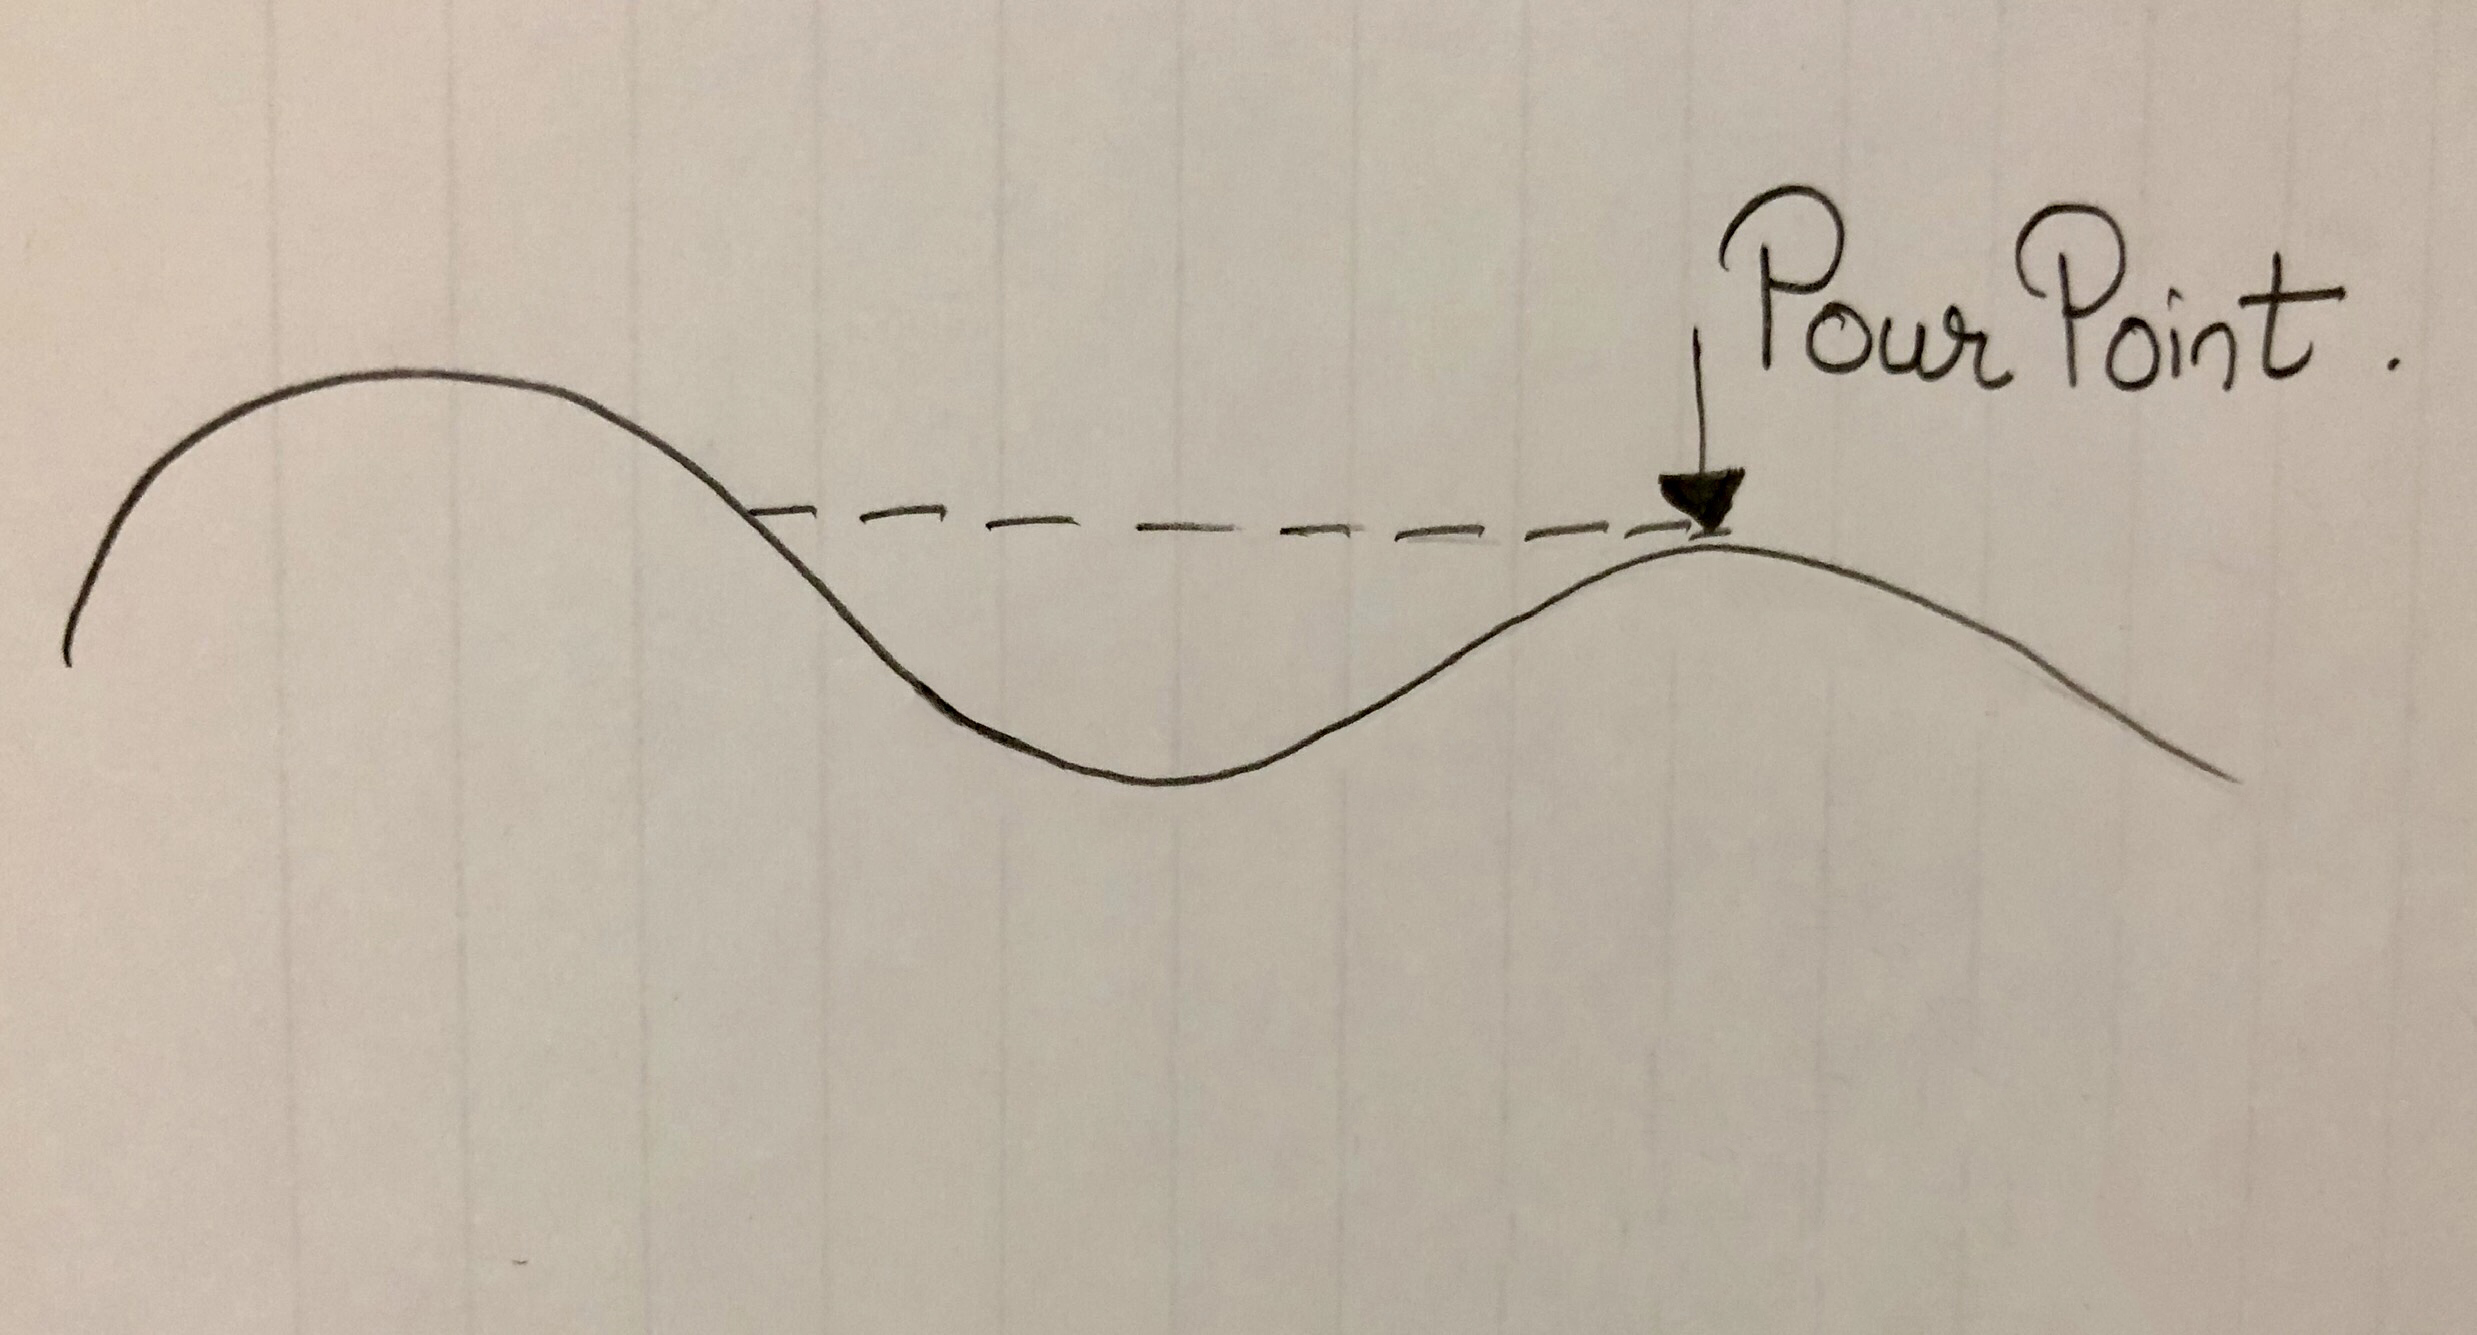 Pour Point.